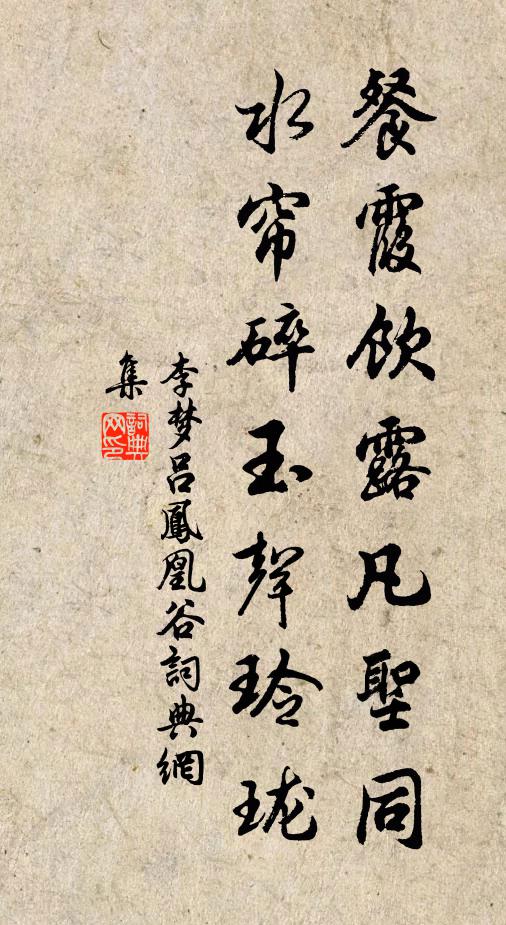 餐霞飲露凡聖同
水帘碎玉聲玲珑
李梦吕鳳凰谷詞典網
集
詞典
网印